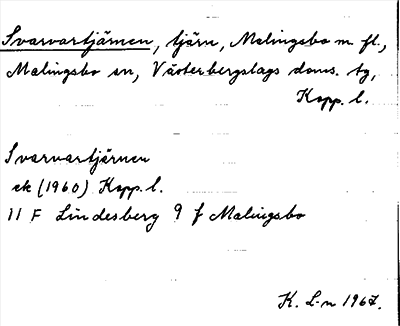 Svarvartjärnen, tjärn, Malingsbo m fl.,
Malingsbo sn, Västerbergslags doms. tg,
Kopp. l.
Svarvartjärnen
ek (1960) Kopp. l.
11 F Lindesberg 9 f Malingsbo
K. L-n 1967.